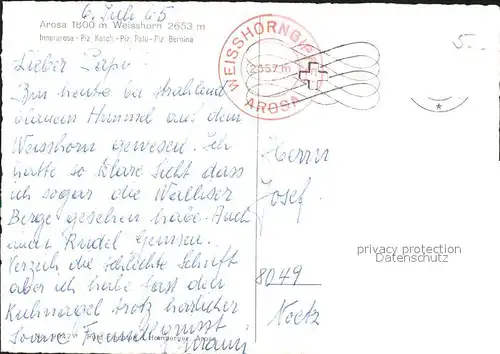 6. Juli 65
Arosa 1800 m Weisshorn 2653 m
Innerarosa - Piz Kesch - Piz Palü - Piz Bernina
Lieber Papi!
Bin heute bei strahlend
blauem Himmel auf dem
Weisshorn gewesen. Ich
hatte so klare Sicht dass
ich sogar die Walliser
Berge gesehen habe. Auch
ein Rudel Gemsen.
Verzeih die schlechte Schrift
aber ich habe fast den
Kuhnagel trotz herrlicher
Sonne. Freundl. grüsst
WEISSHORNGIPFEL
2657 m
AROSA
5.-
Herrn
Josef
8049
privacy protection
Datenschutz
Homberger, Arosa